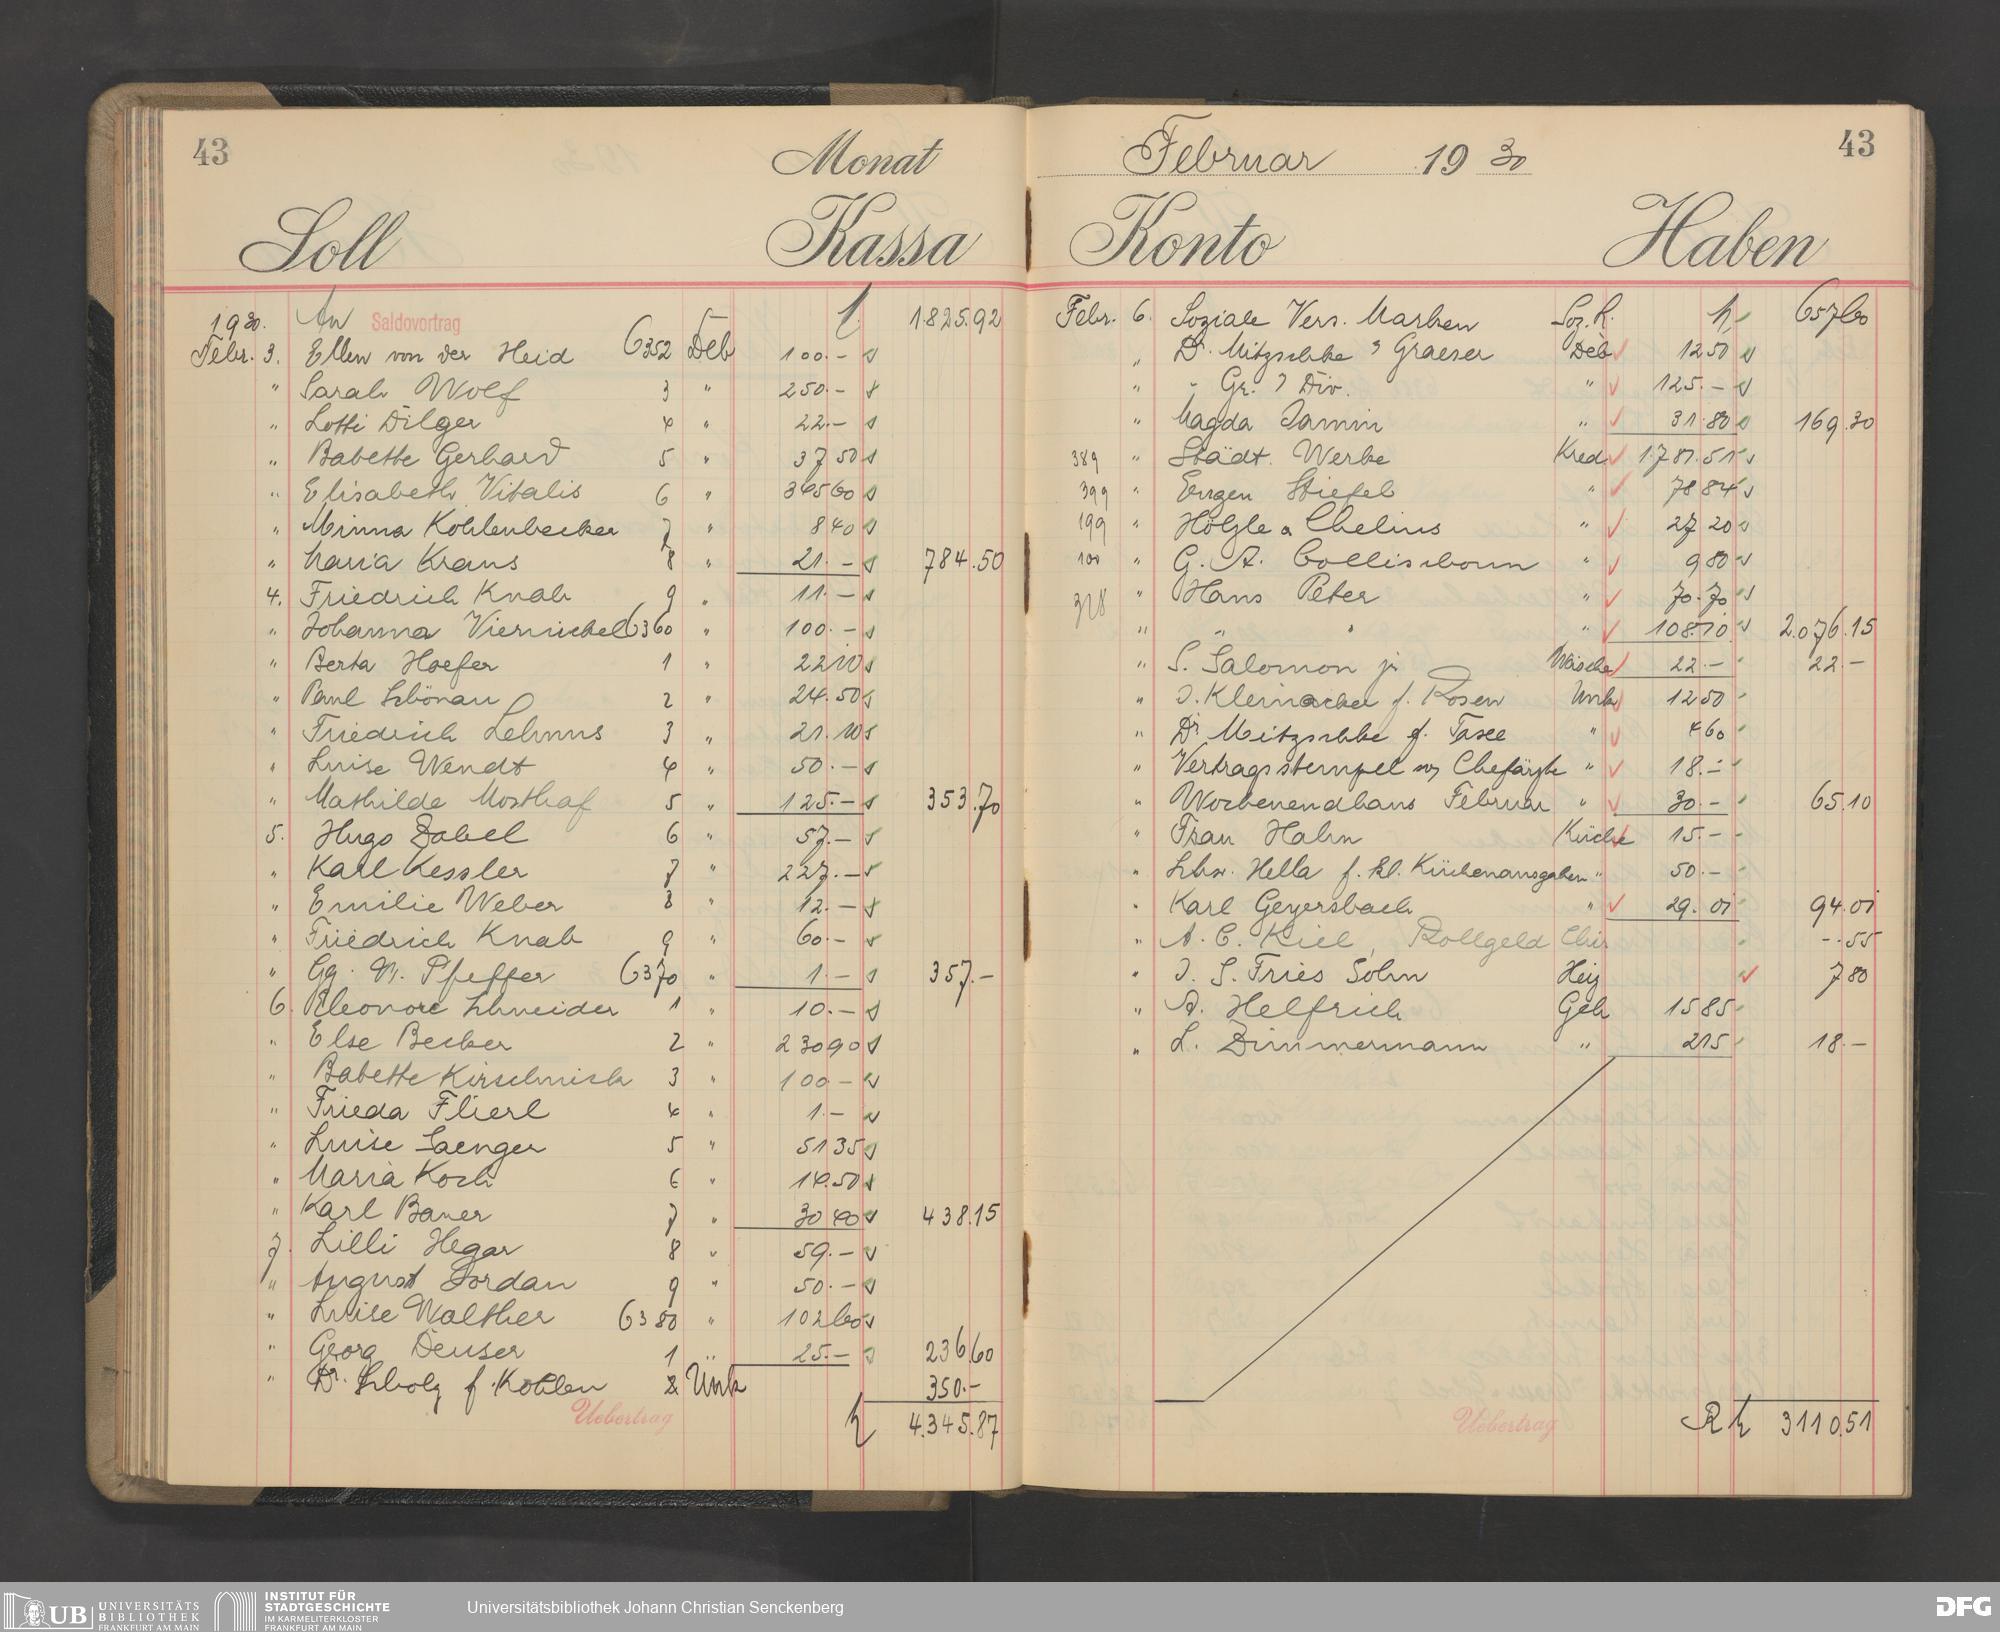 43
Monat
Soll Kassa
1930. An Saldovortrag 1.825.92
Febr. 3. Ellen von der Heid 6352 Deb 100.-
" Sarah Wolf 3 " 250.-
" Lotti Dilger 4 " 22.-
" Babette Gerhard 5 " 37 50
" Elisabeth Vitalis 6 " 345 60
" Minna Kohlenbecker 7 " 8 40
" Maria Kraus 8 " 21.- 784.50
4. Friedrich Knab 9 " 11.-
" Johanna Viernickel 6360 " 100.-
" Berta Hoefer 1 " 22 10
" Paul Schönau 2 " 24.50
" Friedrich Lehnus 3 " 21.10
" Luise Wendt 4 " 50.-
" Mathilde Mosthaf 5 " 125.- 353.70
5. Hugo Dabel 6 " 57.-
" Karl Kessler 7 " 227.-
" Emilie Weber 8 " 12.-
" Friedrich Knab 9 " 60.-
" Gg. M. Pfeffer 6370 " 1.- 357.-
6. Eleonore Schneider 1 " 10.-
" Else Becker 2 " 230 90
" Babette Kirschnick 3 " 100.-
" Frieda Flierl 4 " 1.-
" Luise Saenger 5 " 51 35
" Maria Koch 6 " 14.50
" Karl Bauer 7 " 30 40 438.15
7. Lilli Hegar 8 " 59.-
" August Jordan 9 " 50.-
" Luise Walther 6380 " 102 60
" Georg Deuser 1 " 25.- 236.60
" Dr. Scholz f. Kohlen 2 Unk 350.-
Uebertrag 4.345.87
Februar 1930 43
Konto Haben
Febr. 6. Soziale Vers. Marken Soz. L. 657 60
" Dr. Mitzschke & Graeser Deb 12 50
" " Gr. & Div. " 125.-
" Magda Jamin " 31.80 169.30
389 " Städt. Werke Kred. 1.781.51
399 " Eugen Stiefel " 78 84
199 " Hölzle & Chelius " 27 20
100 " G. A. Collischonn " 9 80
328 " Hans Peter " 70.70
" " " " 108.10 2.076.15
" S. Salomon jr Wäsche 22.- 22.-
" J. Kleinacker f. Rosen Unk 12 50
" Dr. Mitzschke f. Taxe " 4 60
" Vertragsstempel Chefärzte " 18.-
" Wochenendhaus Februar " 30.- 65.10
" Frau Hahn Küche 15.-
" Schw. Hella f. kl. Küchenausgaben " 50.-
" Karl Geyersbach " 29.01 94.01
" A. C. Kiel, Rollgeld Chir -.55
" J. S. Fries Sohn Heiz 7 80
" A. Helfrich Geh 15 85
" L. Zimmermann " 2 15 18.-
Uebertrag 3110.51
UB UNIVERSITÄTS
BIBLIOTHEK
FRANKFURT AM MAIN
INSTITUT FÜR
STADTGESCHICHTE
IM KARMELITERKLOSTER
FRANKFURT AM MAIN
Universitätsbibliothek Johann Christian Senckenberg
DFG